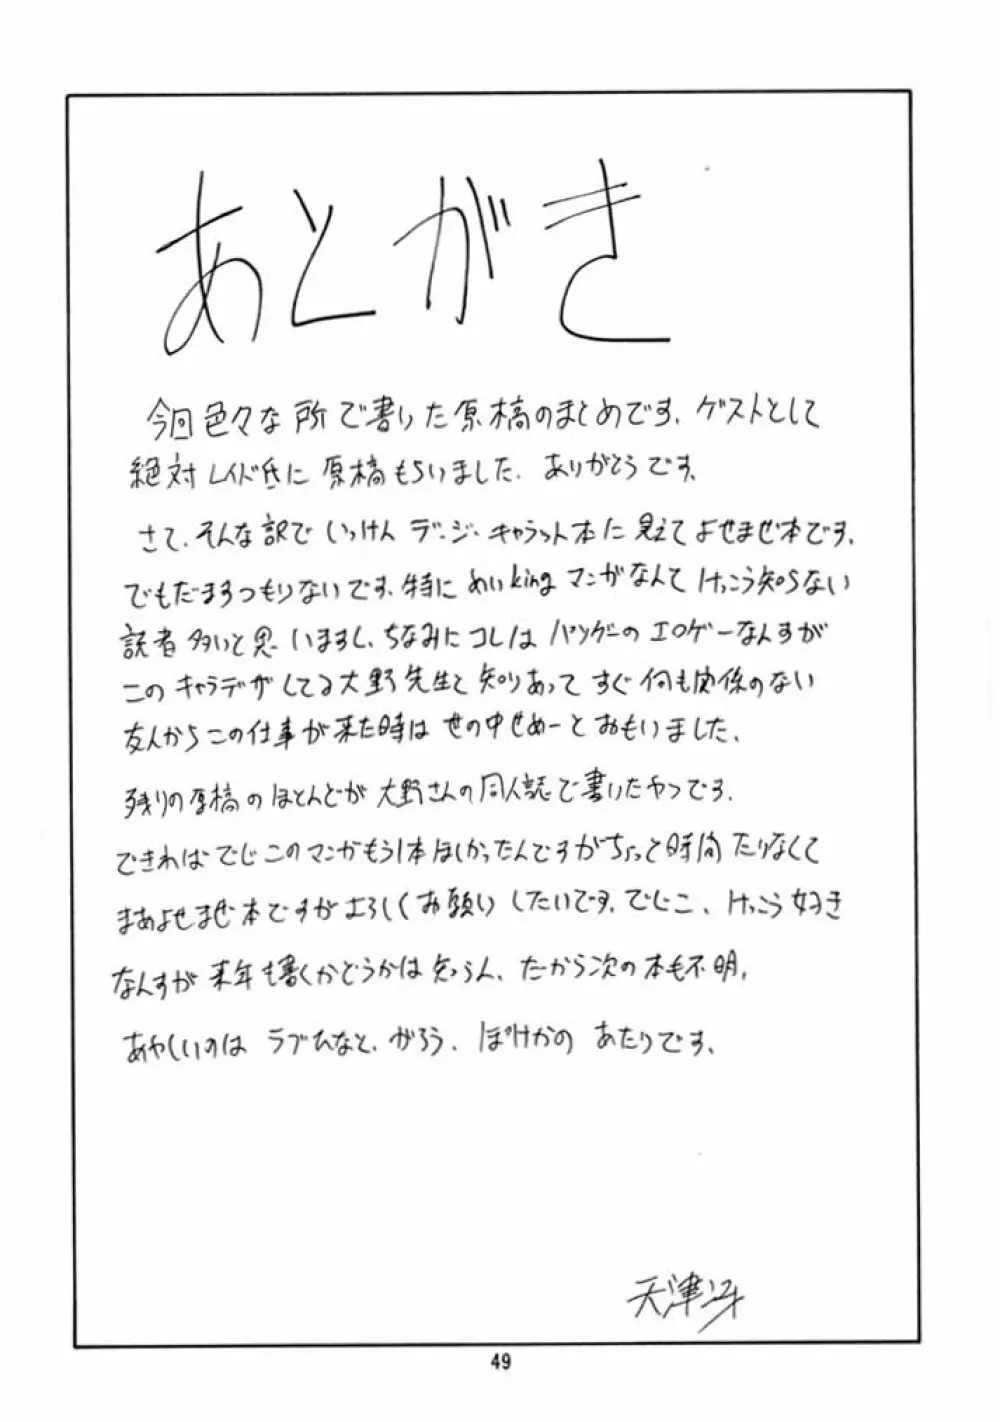 あとがき
今回色々な所で書いた原稿のまとめです。ゲストとして
絶対レイド氏に原稿もらいました。ありがとうです。
さて、そんな訳でいっけんデ・ジ・キャラット本に見えてよせまぜ本です。
でもだますつもりないです、特にめいkingマンガなんてけっこう知らない
読者多いと思いますし、ちなみにコレはバンゲーのエロゲーなんすが
このキャラデザしてる大野先生と知りあってすぐ何も関係のない
友人からこの仕事が来た時は世の中せめーとおもいました、
残りの原稿のほとんどが大野さんの同人誌で書いたやつです。
できればでじこのマンガもう1本ほしかったんですがちょっと時間たりなくて
まあよせまぜ本ですがよろしくお願いしたいです。でじこ、けっこう好き
なんすが来年も書くかどうかは知らん、だから次の本も不明。
あやしいのはラブひなと、がろう、ぽけかのあたりです、
天津冴
49